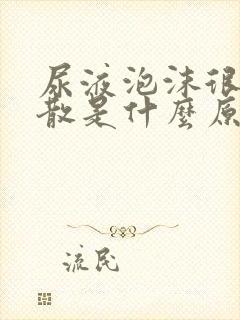 尿液泡沫很
散是什麼原
流民